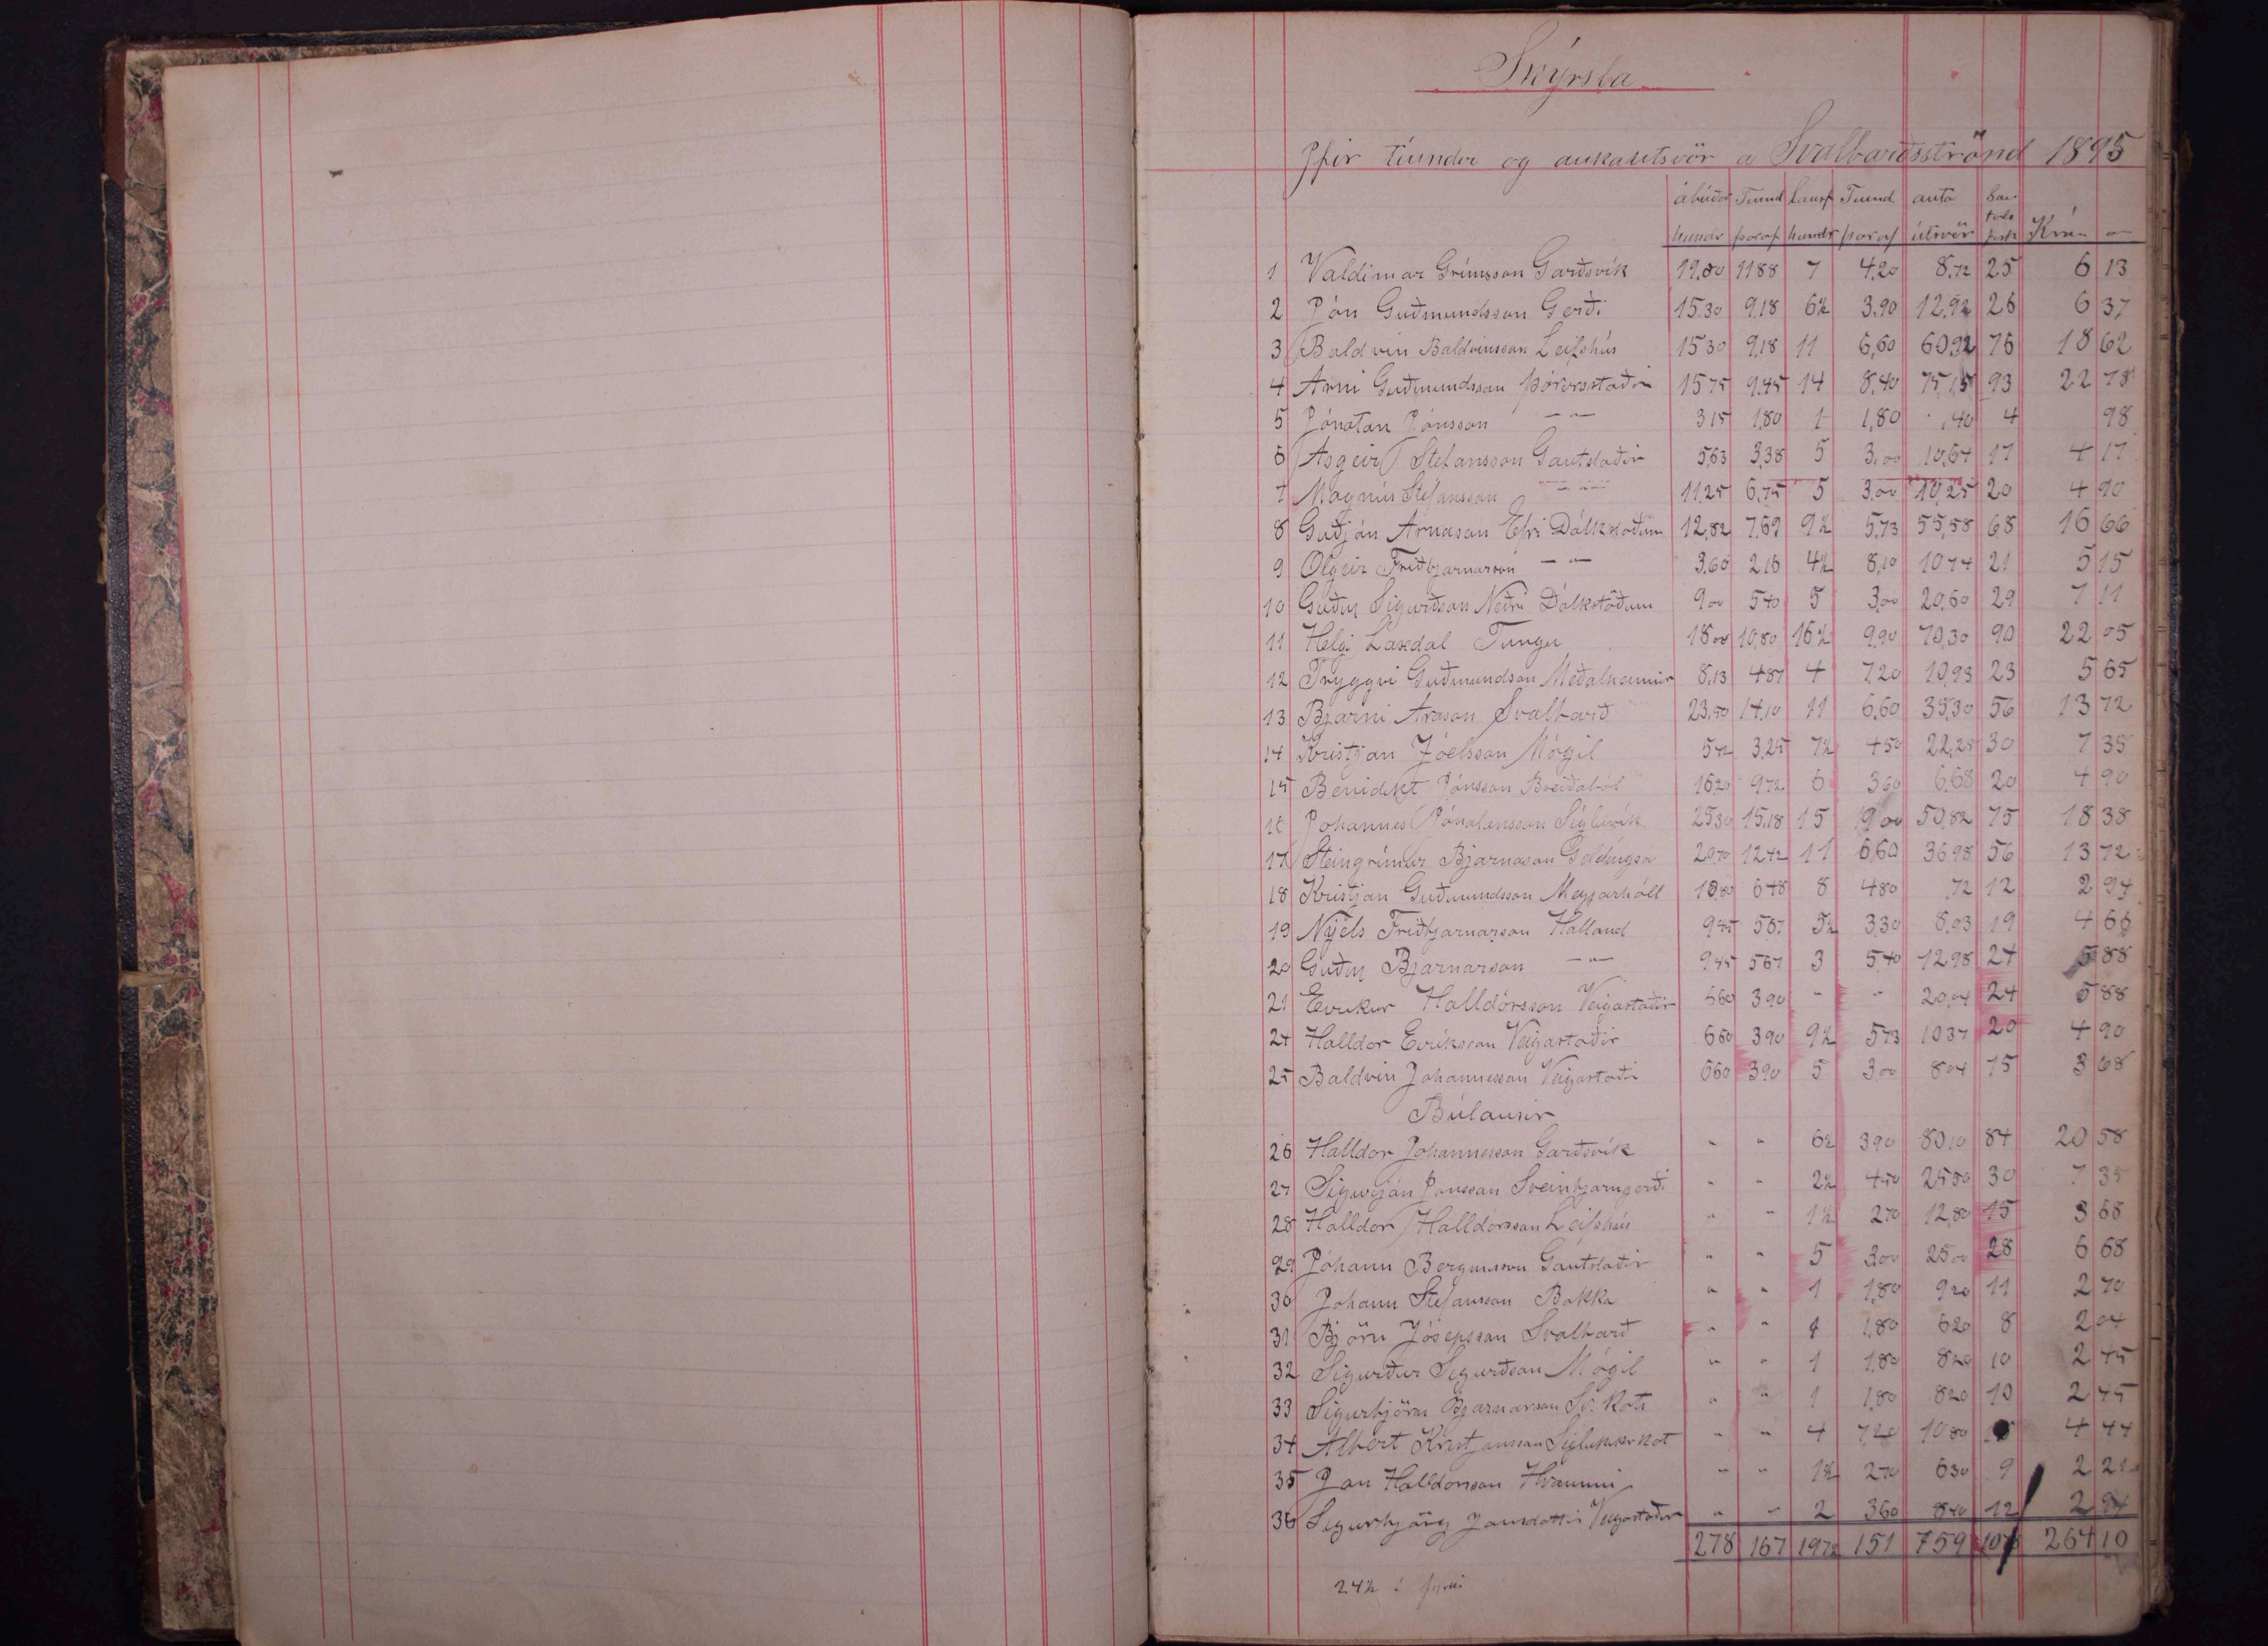 Skýrsla
Yfir tíundir og aukaútsvör a Svalbarðsströnd 1895
ábúðar Tíund lausf Tíund auka Sam
hundr þaraf hundr þaraf útsvör tals fisk Krón a
1 Valdimar Grímsson Garðsvík 19.80 1188 7 4.20 8.72 25 6 13
2 Jón Guðmundsson Gerði 15.30 9.18 6½ 3.90 12.92 26 6 37
3 Baldvin Baldvinsson Leifshús 15 30 9.18 11 6,60 60.92 76 18 62
4 Arni Guðmundsson Þórisstaðir 15 75 9.45 14 8.40 75 15 93 22 78
5 Jónatan Jónsson — " — 3 15 1.80 1 1,80 ,40 4 98
6 Asgeir Stefansson Gautstaðir 5.63 3.38 5 3.00 10.64 17 4 17
7 Magnús Stefansson — " — 11.25 6.75 5 3.00 10.25 20 4 90
8 Guðjón Arnason Efri Dálkstöðum 12,82 7.69 9½ 5.73 55,58 68 16 66
9 Olgeir Friðbjarnarson — " — 3.60 2 16 4½ 8,10 10 74 21 5 15
10 Guðm Sigurðson Neðri Dálkstöðum 9 00 5 40 5 3,00 20.60 29 7 11
11 Helgi Laxdal Tungu 18 00 10.80 16½ 9.90 70.30 90 22 05
12 Tryggvi Guðmundson Meðalheimur 8.13 4 87 4 7 20 10.93 23 5 65
13 Bjarni Arason Svalbarð 23.50 14.10 11 6.60 35.30 56 13 72
14 Kristjan Jóelsson Mógil 5 42 3.25 7½ 4 50 22.25 30 7 35
15 Benidikt Jónsson Breiðaból 16.20 9 72 6 3 60 6.68 20 4 90
16 Johannes Jónatansson Sigluvík 25 30 15.18 15 9 00 50,82 75 18 38
17 Steingrímur Bjarnason Geldingsá 20.70 12 42 11 6,60 36 98 56 13 72
18 Kristjan Guðmundsson Meyjarhóll 10.80 6 48 8 4 80 ,72 12 2 94
19 Nýels Friðbjarnarson Halland 9 45 5 67 5½ 3.30 8.03 19 4 66
20 Guðm Bjarnarson — " — 9 45 5 67 3 5 40 12 98 24 5 88
21 Eirikur Halldórsson Veigastaðir 6 60 3 90 " " 20,04 24 5 88
24 Halldor Eiriksson Veigastaðir 6 60 3 90 9½ 5 73 10 37 20 4 90
25 Baldvin Johannesson Veigastaðir 6 60 3 90 5 3 00 8 04 15 3 68
Búlausir
26 Halldor Johannesson Garðsvík " " 6½ 3 90 80 10 84 20 58
27 Sigurjón Jonsson Sveinbjarngerði " " 2½ 4 50 25 50 30 7 35
28 Halldor Halldorsson Leifshús " " 1½ 2 70 12,80 15 3 68
29 Jóhann Bergmsson Gautstaðir " " 5 3 00 25 00 28 6 68
30 Johann Stefansson Bakka " " 1 1,80 9 20 11 2 70
31 Björn Jósepsson Svalbarð " " 1 1,80 6 20 8 2 04
32 Sigurður Sigurðson Mógil " " 1 1.80 8 20 10 2 45
33 Sigurbjörn Bjarnarson Sv. Koti " " 1 1,80 8 20 10 2 45
34 Albert Kristjansson Sigluvíkurkot " " 4 7.20 10 80 4 44
35 Jon Halldorsson Hvammi " " 1½ 2 70 6 30 9 2 21
36 Sigurbjörg Jonsdottir Veigastaðir " " 2 3 60 8 40 12 2 94
278 167 197½ 151 759 1078 264 10
24½ í